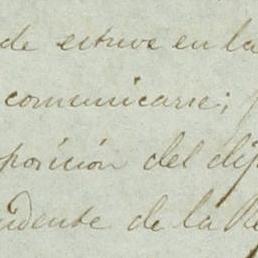 de estuve en la
comunicarse;
posicion del dip
idente de la Re